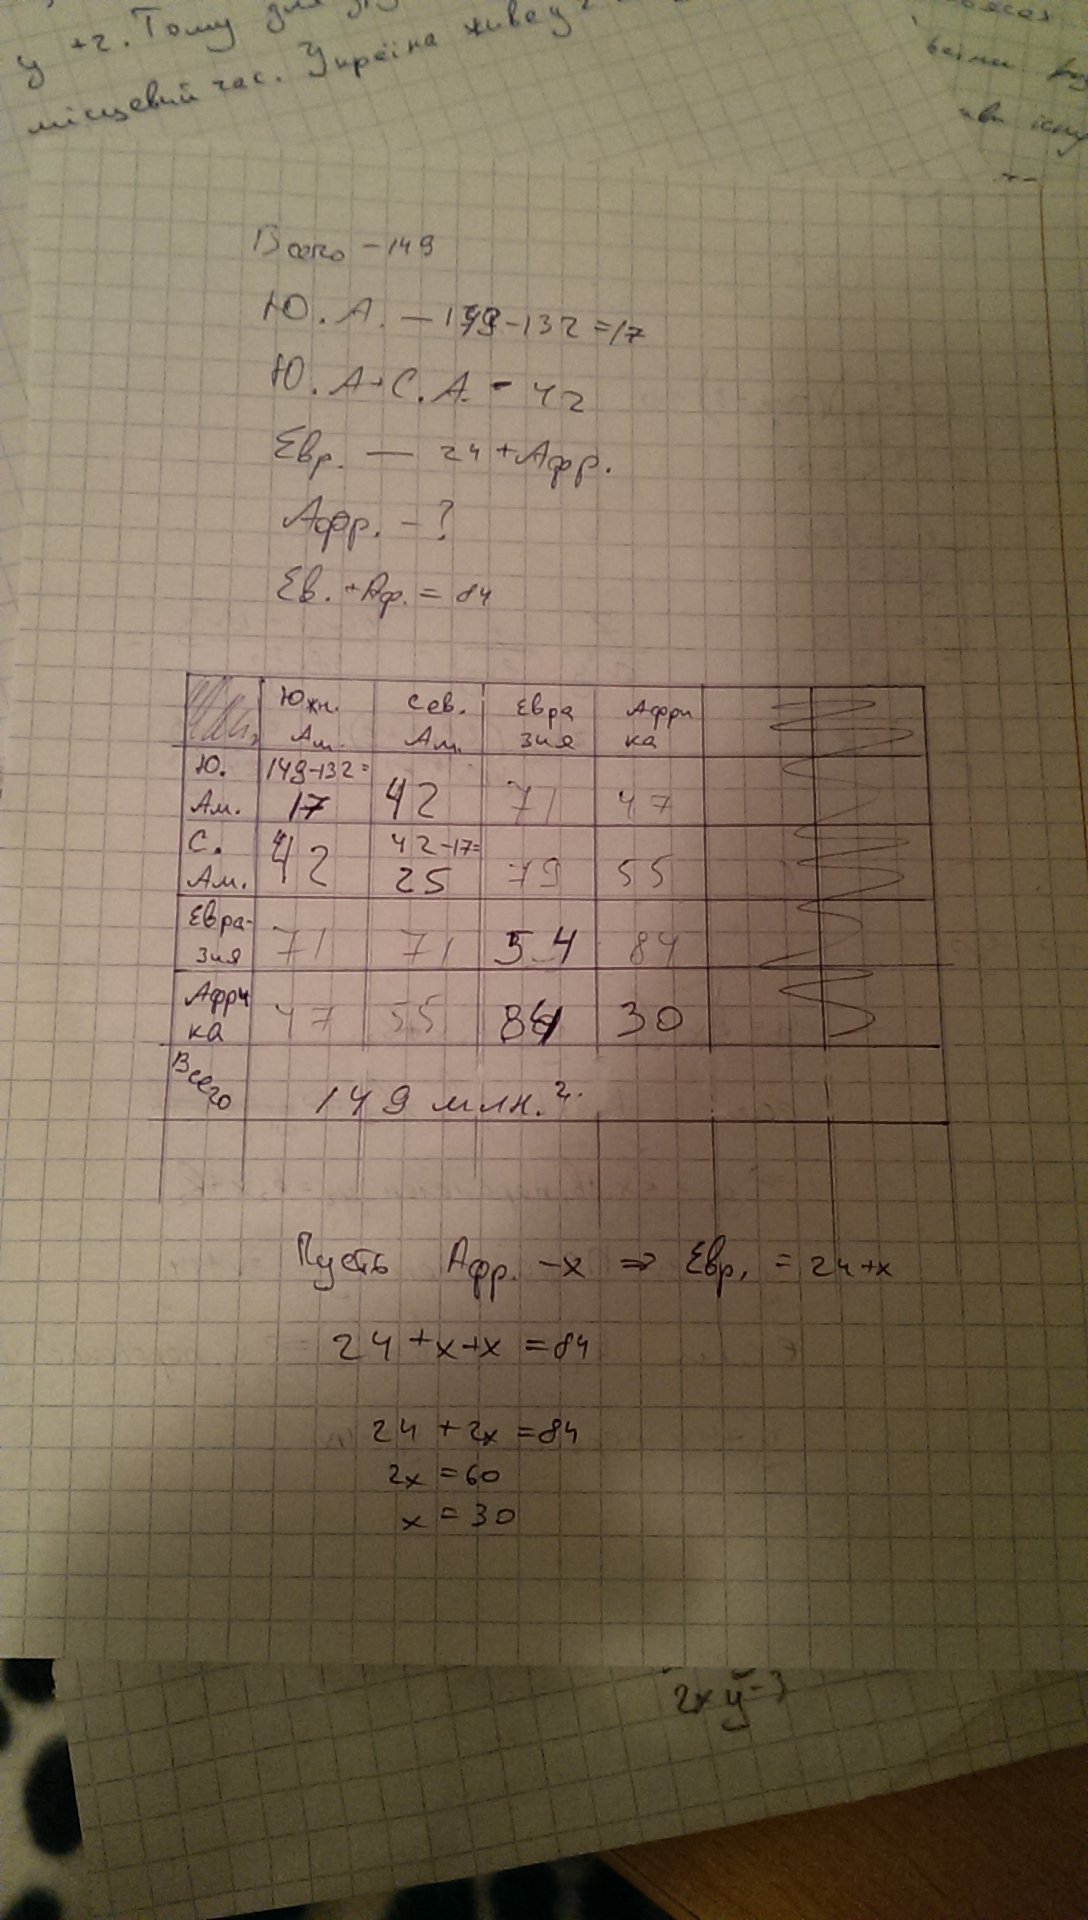 у +2. Тому для
місцевий час. Україна живе у 2
Всего - 149
Ю.А. - 149-132=17
Ю.А+С.А. - 42
Евр. - 24+Афр.
Афр. - ?
Ев.+Аф. = 84
Южн. Ам. Сев. Ам. Евра зия Афри ка
Ю. Ам. 149-132= 17 42 71 47
С. Ам. 42 42-17= 25 79 55
Евра- зия 71 71 54 84
Афри ка 47 55 84 30
Всего 149 млн.2.
Пусть Афр. - х ⇒ Евр. = 24+х
24+х+х=84
24+2х=84
2х=60
х=30
2х у-3